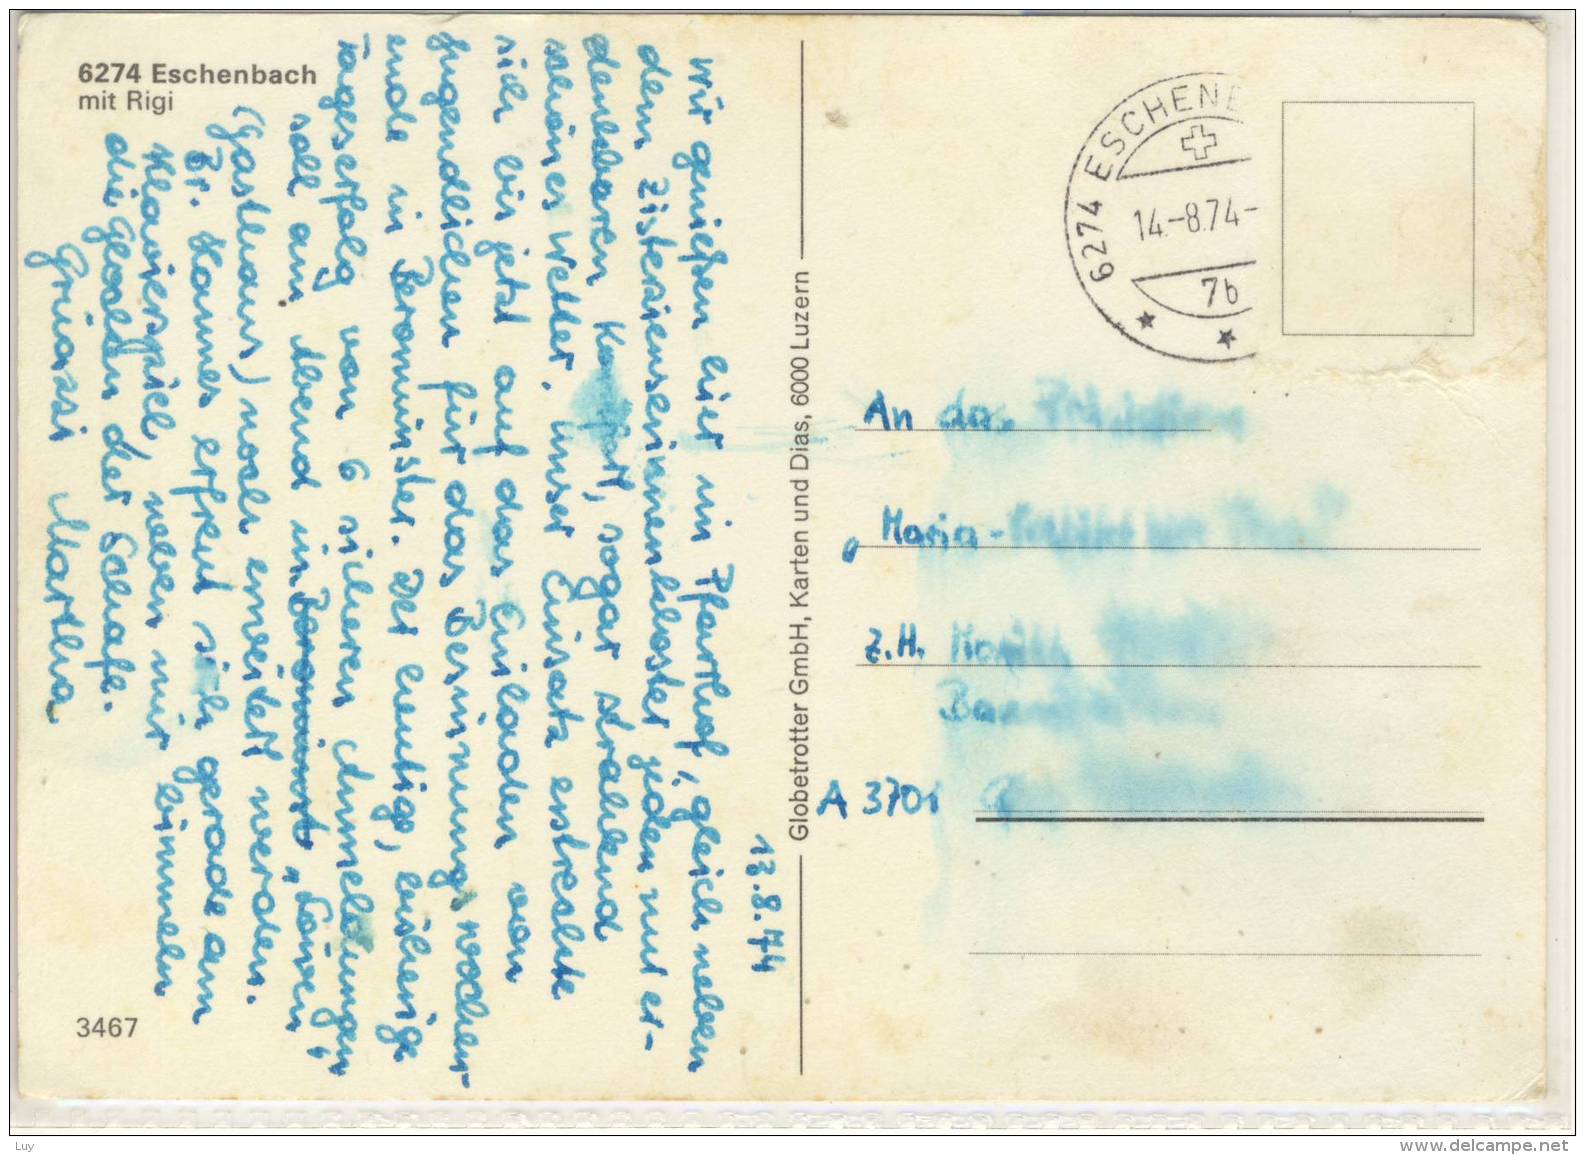 6274 Eschenbach
mit Rigi
13.8.74
Wir genießen hier im Pfarrhof, gleich neben
dem Zisterzienserinnenkloster jeden nur er-
denkbaren Komfort, sogar strahlend
schönes Wetter. Unser Einsatz erstreckte
sich bis jetzt auf das Einladen von
Jugendlichen für das Besinnungswochen-
ende in Beromünster. Der heutige, bisherige
Tageserfolg von 6 sicheren Anmeldungen
soll am Abend im "Löwen"
(Gasthaus) noch erweitert werden.
Br. Hannes erfreut sich gerade am
Klavierspiel, neben mir bimmeln
die Glocken der Schafe.
Grüazzi Martha
3467
Globetrotter GmbH, Karten und Dias, 6000 Luzern
6274 ESCHENB
14.-8.74-
7b
An das
"Maria-
z.H.
A 3701
Luy
www.delcampe.net